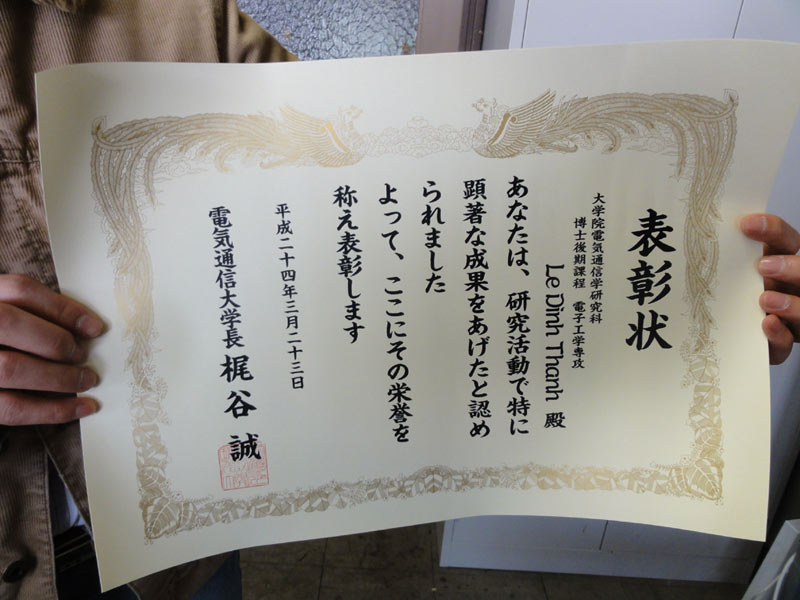 表彰状
大学院電気通信学研究科
博士後期課程 電子工学専攻
Le Dinh Thanh 殿
あなたは、研究活動で特に
顕著な成果をあげたと認め
られました
よって、ここにその栄誉を
称え表彰します
平成二十四年三月二十三日
電気通信大学長 梶谷 誠